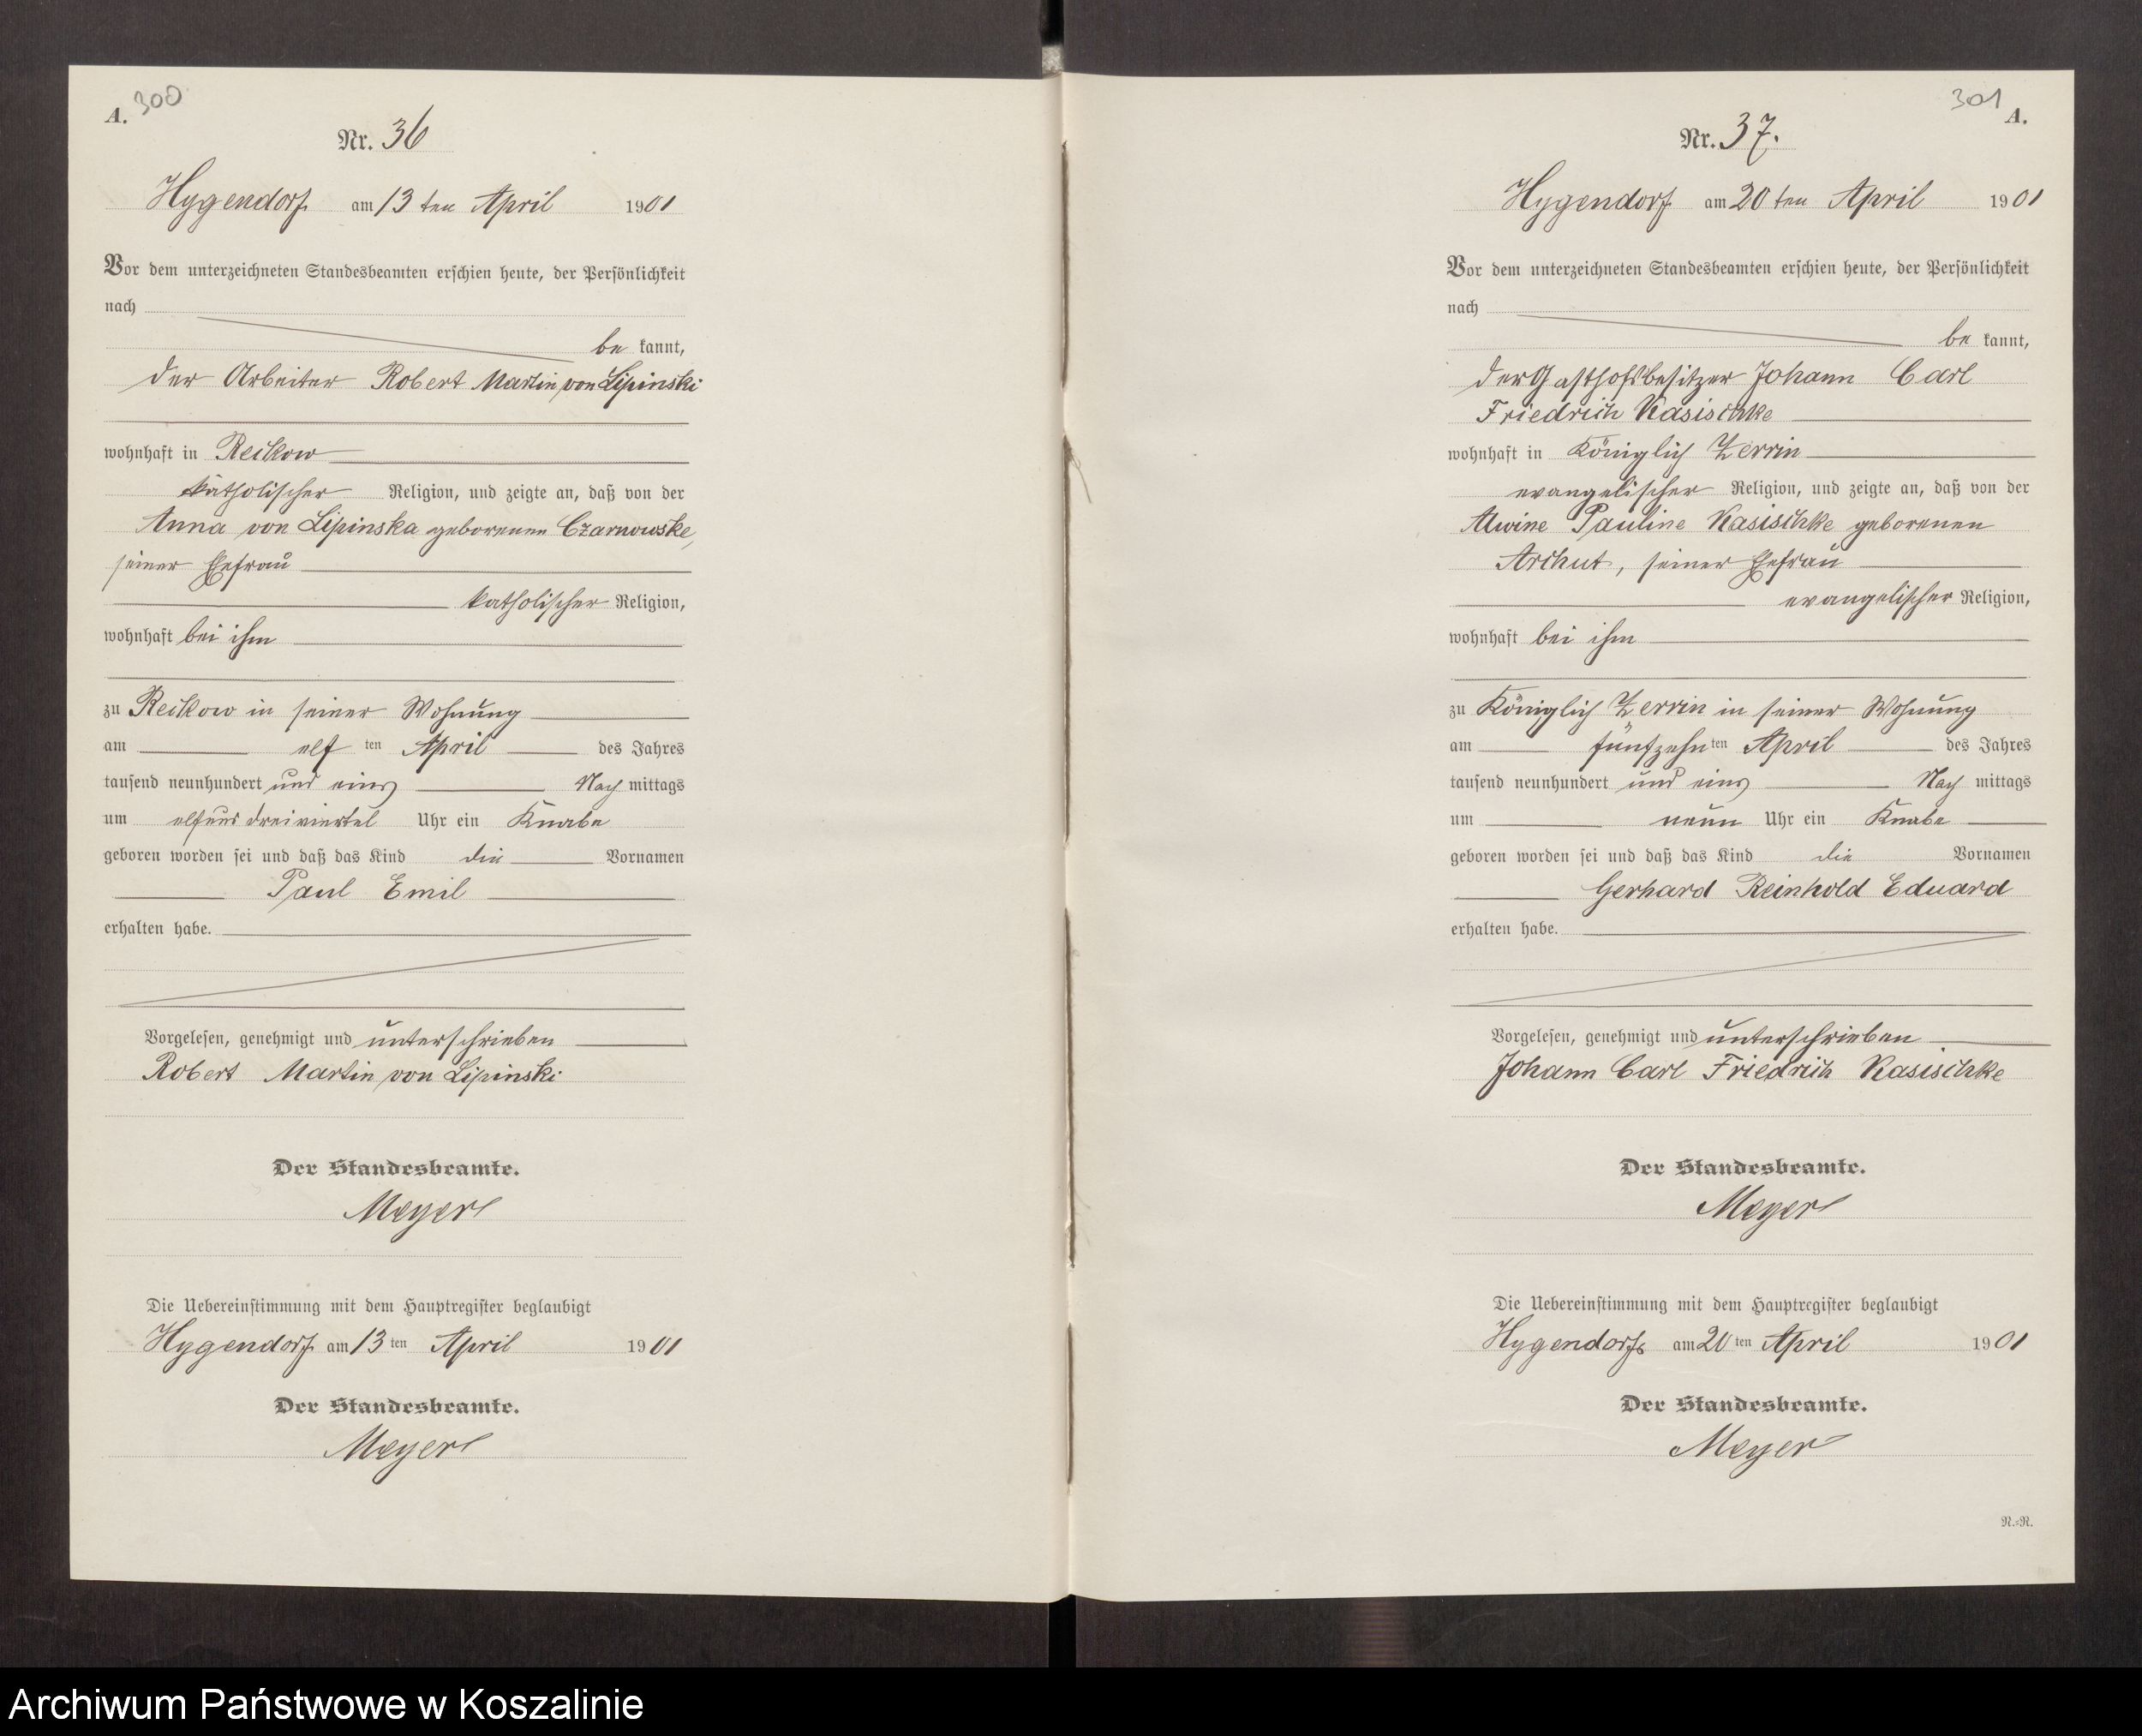 A. 300
Nr. 36
Hygendorf am 13ten April 1901
Vor dem unterzeichneten Standesbeamten erschien heute, der Persönlichkeit
nach
be kannt,
der Arbeiter Robert Martin von Lipinski
wohnhaft in Reckow
katholischer Religion, und zeigte an, daß von der
Anna von Lipinska geborenen Czarnowske,
seiner Ehefrau
katholischer Religion,
wohnhaft bei ihm
zu Reckow in seiner Wohnung
am elf ten April des Jahres
tausend neunhundert und eins Nach mittags
um elf und dreiviertel Uhr ein Knabe
geboren worden sei und daß das Kind die Vornamen
Paul Emil
erhalten habe.
Vorgelesen, genehmigt und unterschrieben
Robert Martin von Lipinski
Der Standesbeamte.
Meyer
Die Uebereinstimmung mit dem Hauptregister beglaubigt
Hygendorf am 13ten April 1901
Der Standesbeamte.
Meyer
301 A.
Nr. 37.
Hygendorf am 20ten April 1901
Vor dem unterzeichneten Standesbeamten erschien heute, der Persönlichkeit
nach
be kannt,
der Gasthofsbesitzer Johann Carl
Friedrich Kasischke
wohnhaft in Königlich Zerrin
evangelischer Religion, und zeigte an, daß von der
Alwine Pauline Kasischke geborenen
Archut, seiner Ehefrau
evangelischer Religion,
wohnhaft bei ihm
zu Königlich Zerrin in seiner Wohnung
am fünfzehn ten April des Jahres
tausend neunhundert und eins Nach mittags
um neun Uhr ein Knabe
geboren worden sei und daß das Kind die Vornamen
Gerhard Reinhold Eduard
erhalten habe.
Vorgelesen, genehmigt und unterschrieben
Johann Carl Friedrich Kasischke
Der Standesbeamte.
Meyer
Die Uebereinstimmung mit dem Hauptregister beglaubigt
Hygendorf am 20ten April 1901
Der Standesbeamte.
Meyer
N.=N.
Archiwum Państwowe w Koszalinie